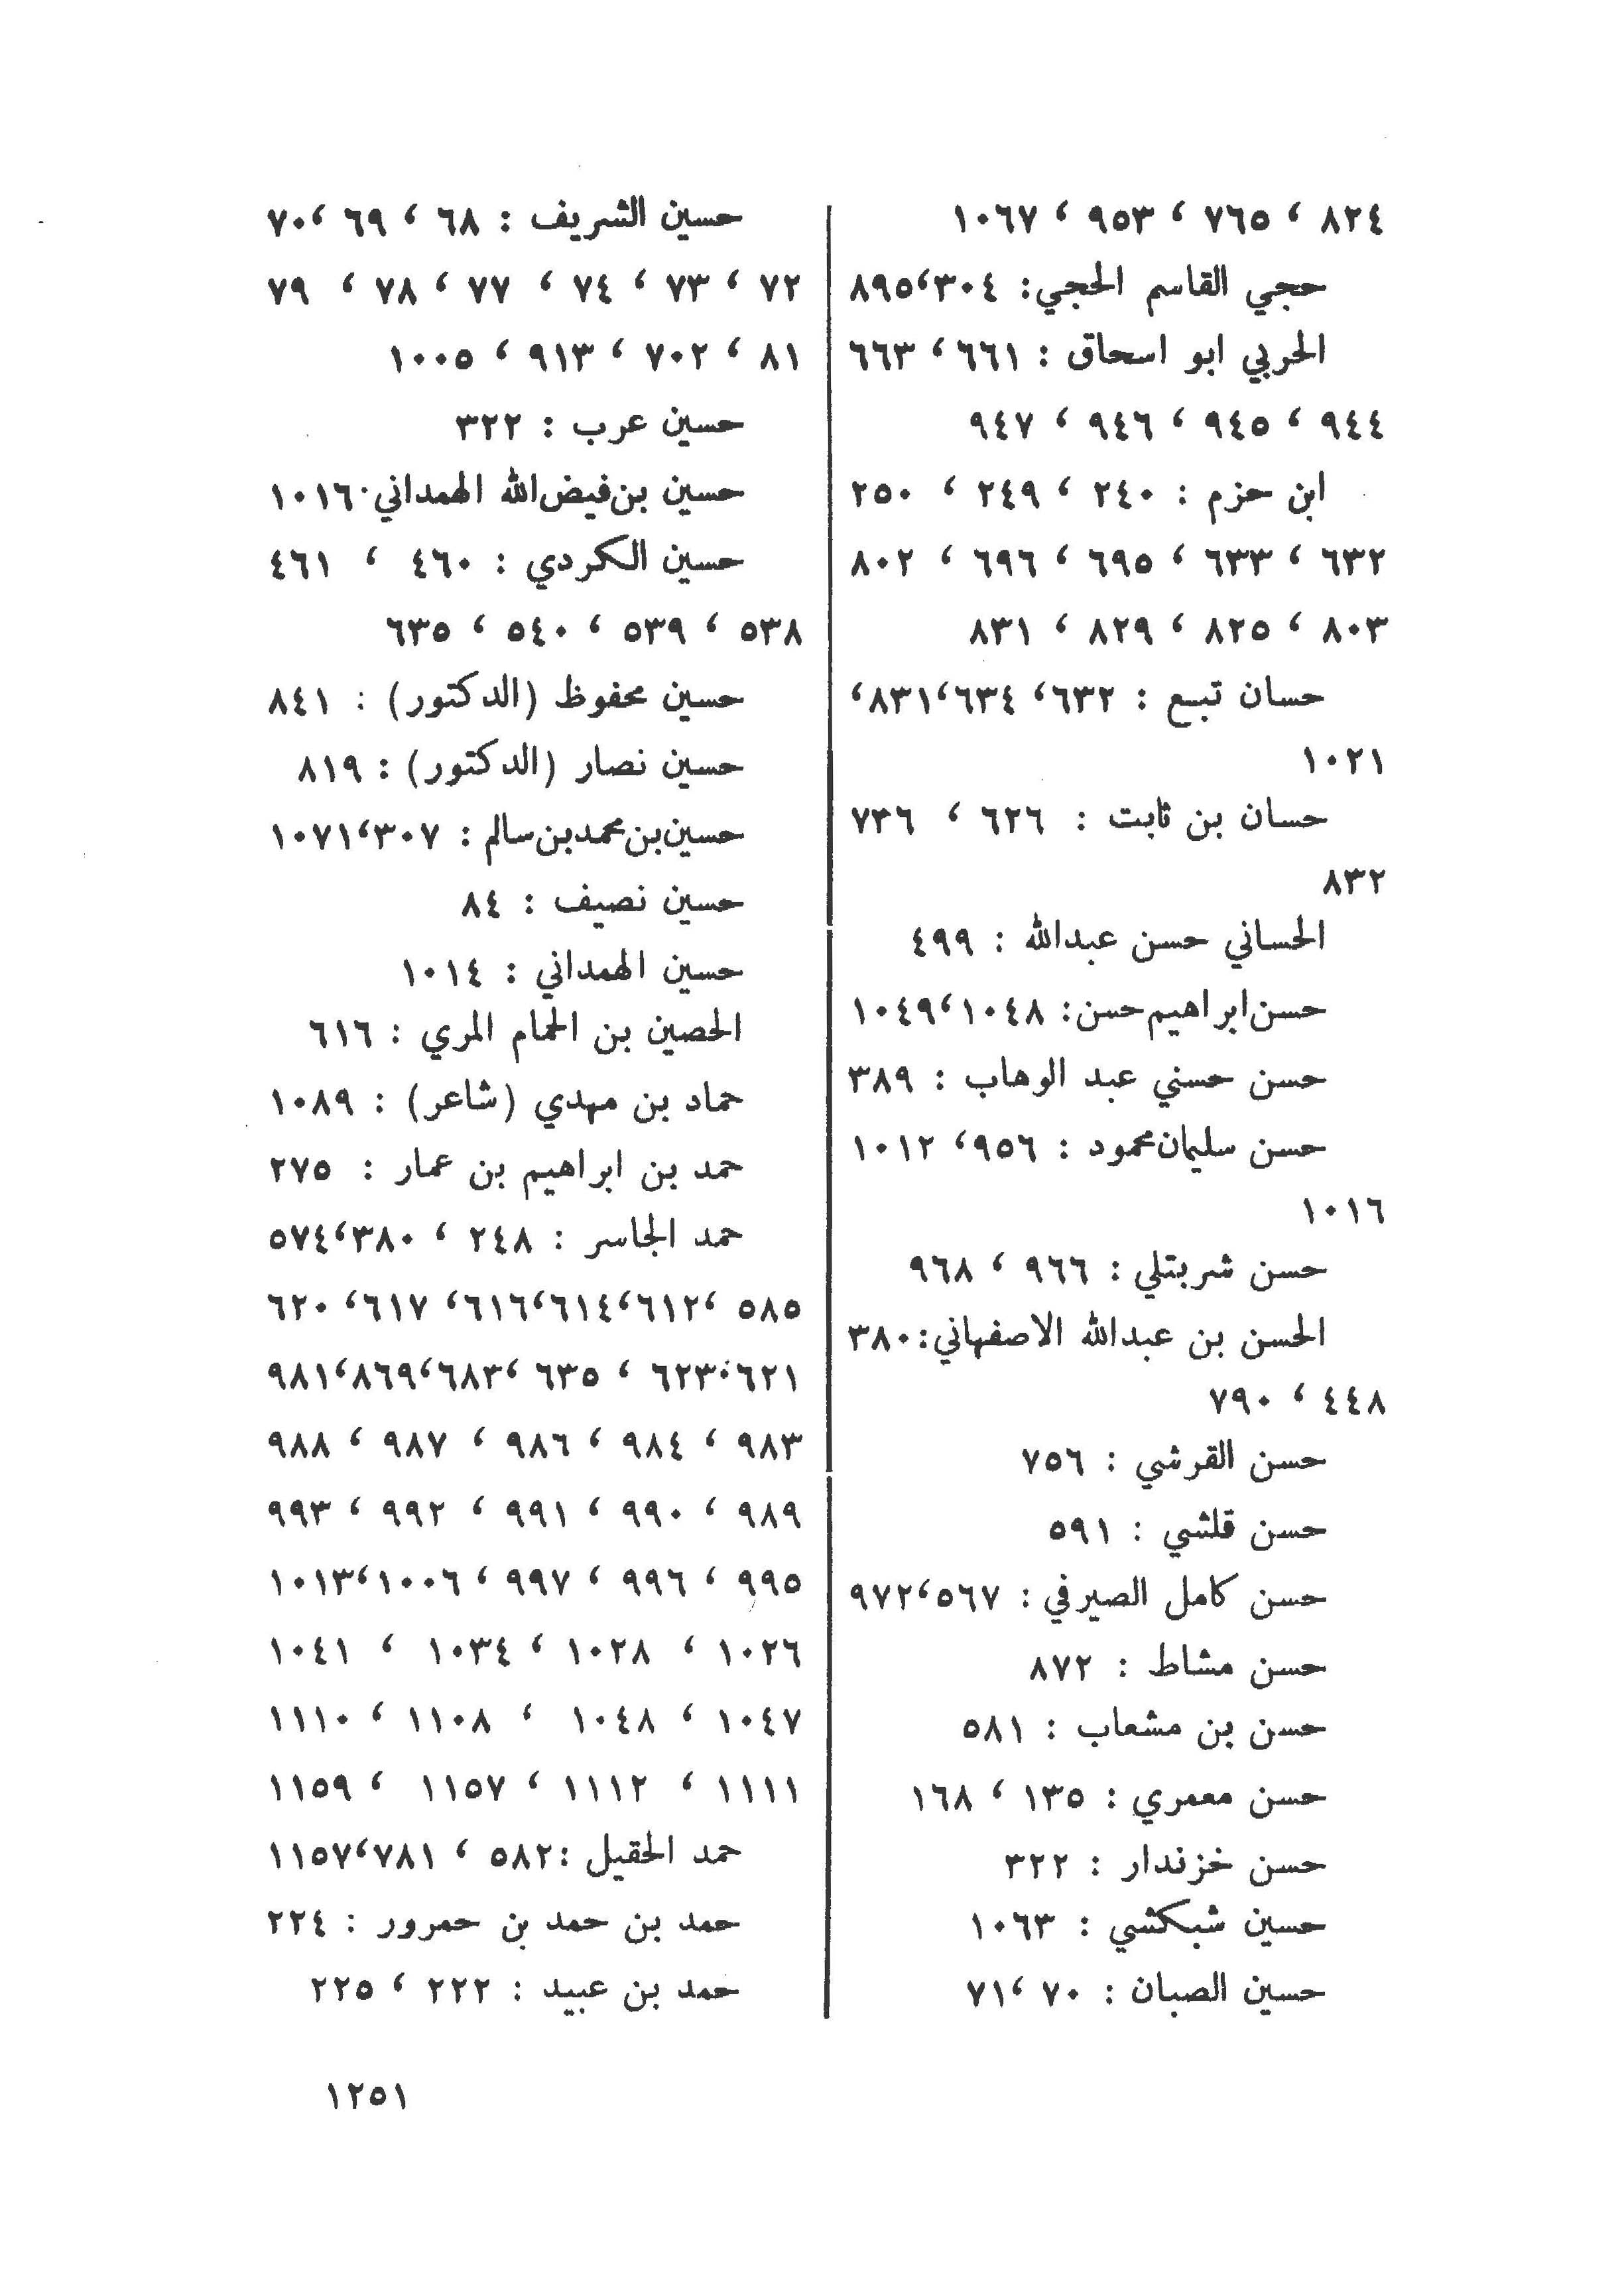 ٨٢٤ ، ٧٦٥ ، ٩٥٣ ، ١٠٦٧
حجي القاسم الحجي: ٣٠٤،٨٩٥
الحربي ابو اسحاق : ٦٦١ ، ٦٦٣
٩٤٤ ، ٩٤٥ ، ٩٤٦ ، ٩٤٧
ابن حزم : ٢٤٠ ، ٢٤٩ ، ٢٥٠
٦٣٢ ، ٦٣٣ ، ٦٩٥ ، ٦٩٦ ، ٨٠٢
٨٠٣ ، ٨٢٥ ، ٨٢٩ ، ٨٣١
حسان تبع : ٦٣٢، ٦٣٤،٨٣١،
١٠٢١
حسان بن ثابت : ٦٢٦ ، ٧٣٦
٨٣٢
الحساني حسن عبدالله : ٤٩٩
حسن ابراهيم حسن: ١٠٤٨،١٠٤٩
حسن حسني عبد الوهاب : ٣٨٩
حسن سليمان محمود : ٩٥٦، ١٠١٢
١٠١٦
حسن شربتلي : ٩٦٦ ، ٩٦٨
الحسن بن عبدالله الاصفهاني:٣٨٠
٤٤٨ ، ٧٩٠
حسن القرشي : ٧٥٦
حسن قلشي : ٥٩١
حسن كامل الصيرفي : ٥٦٧،٩٧٢
حسن مشاط : ٨٧٢
حسن بن مشعاب : ٥٨١
حسن معمري : ١٣٥ ، ١٦٨
حسن خزندار : ٣٢٢
حسين شبكشي : ١٠٦٣
حسين الصبان : ٧٠ ،٧١
حسين الشريف : ٦٨ ، ٦٩ ،٧٠
٧٢ ، ٧٣ ، ٧٤ ، ٧٧ ، ٧٨ ، ٧٩
٨١ ، ٧٠٢ ، ٩١٣ ، ١٠٠٥
حسين عرب : ٣٢٢
حسين بن فيض الله الهمداني٠١٠١٦
حسين الكردي : ٤٦٠ ، ٤٦١
٥٣٨ ، ٥٣٩ ، ٥٤٠ ، ٦٣٥
حسين محفوظ (الدكتور) : ٨٤١
حسين نصار (الدكتور) : ٨١٩
حسين بن محمد بن سالم : ٣٠٧،١٠٧١
حسين نصيف : ٨٤
حسين الهمداني : ١٠١٤
الحصين بن الحمام المري : ٦١٦
حماد بن مهدي (شاعر) : ١٠٨٩
حمد بن ابراهيم بن عمار : ٢٧٥
حمد الجاسر : ٢٤٨ ، ٣٨٠،٥٧٤
٥٨٥ ،٦١٢،٦١٤،٦١٦، ٦١٧، ٦٢٠
٦٢١،٦٢٣ ، ٦٣٥ ،٦٨٣،٨٦٩،٩٨١
٩٨٣ ، ٩٨٤ ، ٩٨٦ ، ٩٨٧ ، ٩٨٨
٩٨٩ ، ٩٩٠ ، ٩٩١ ، ٩٩٢ ، ٩٩٣
٩٩٥ ، ٩٩٦ ، ٩٩٧ ، ١٠٠٦،١٠١٣
١٠٢٦ ، ١٠٢٨ ، ١٠٣٤ ، ١٠٤١
١٠٤٧ ، ١٠٤٨ ، ١١٠٨ ، ١١١٠
١١١١ ، ١١١٢ ، ١١٥٧ ، ١١٥٩
حمد الحقيل :٥٨٢ ، ٧٨١،١١٥٧
حمد بن حمد بن حمرور : ٢٢٤
حمد بن عبيد : ٢٢٢ ، ٢٢٥
١٢٥١